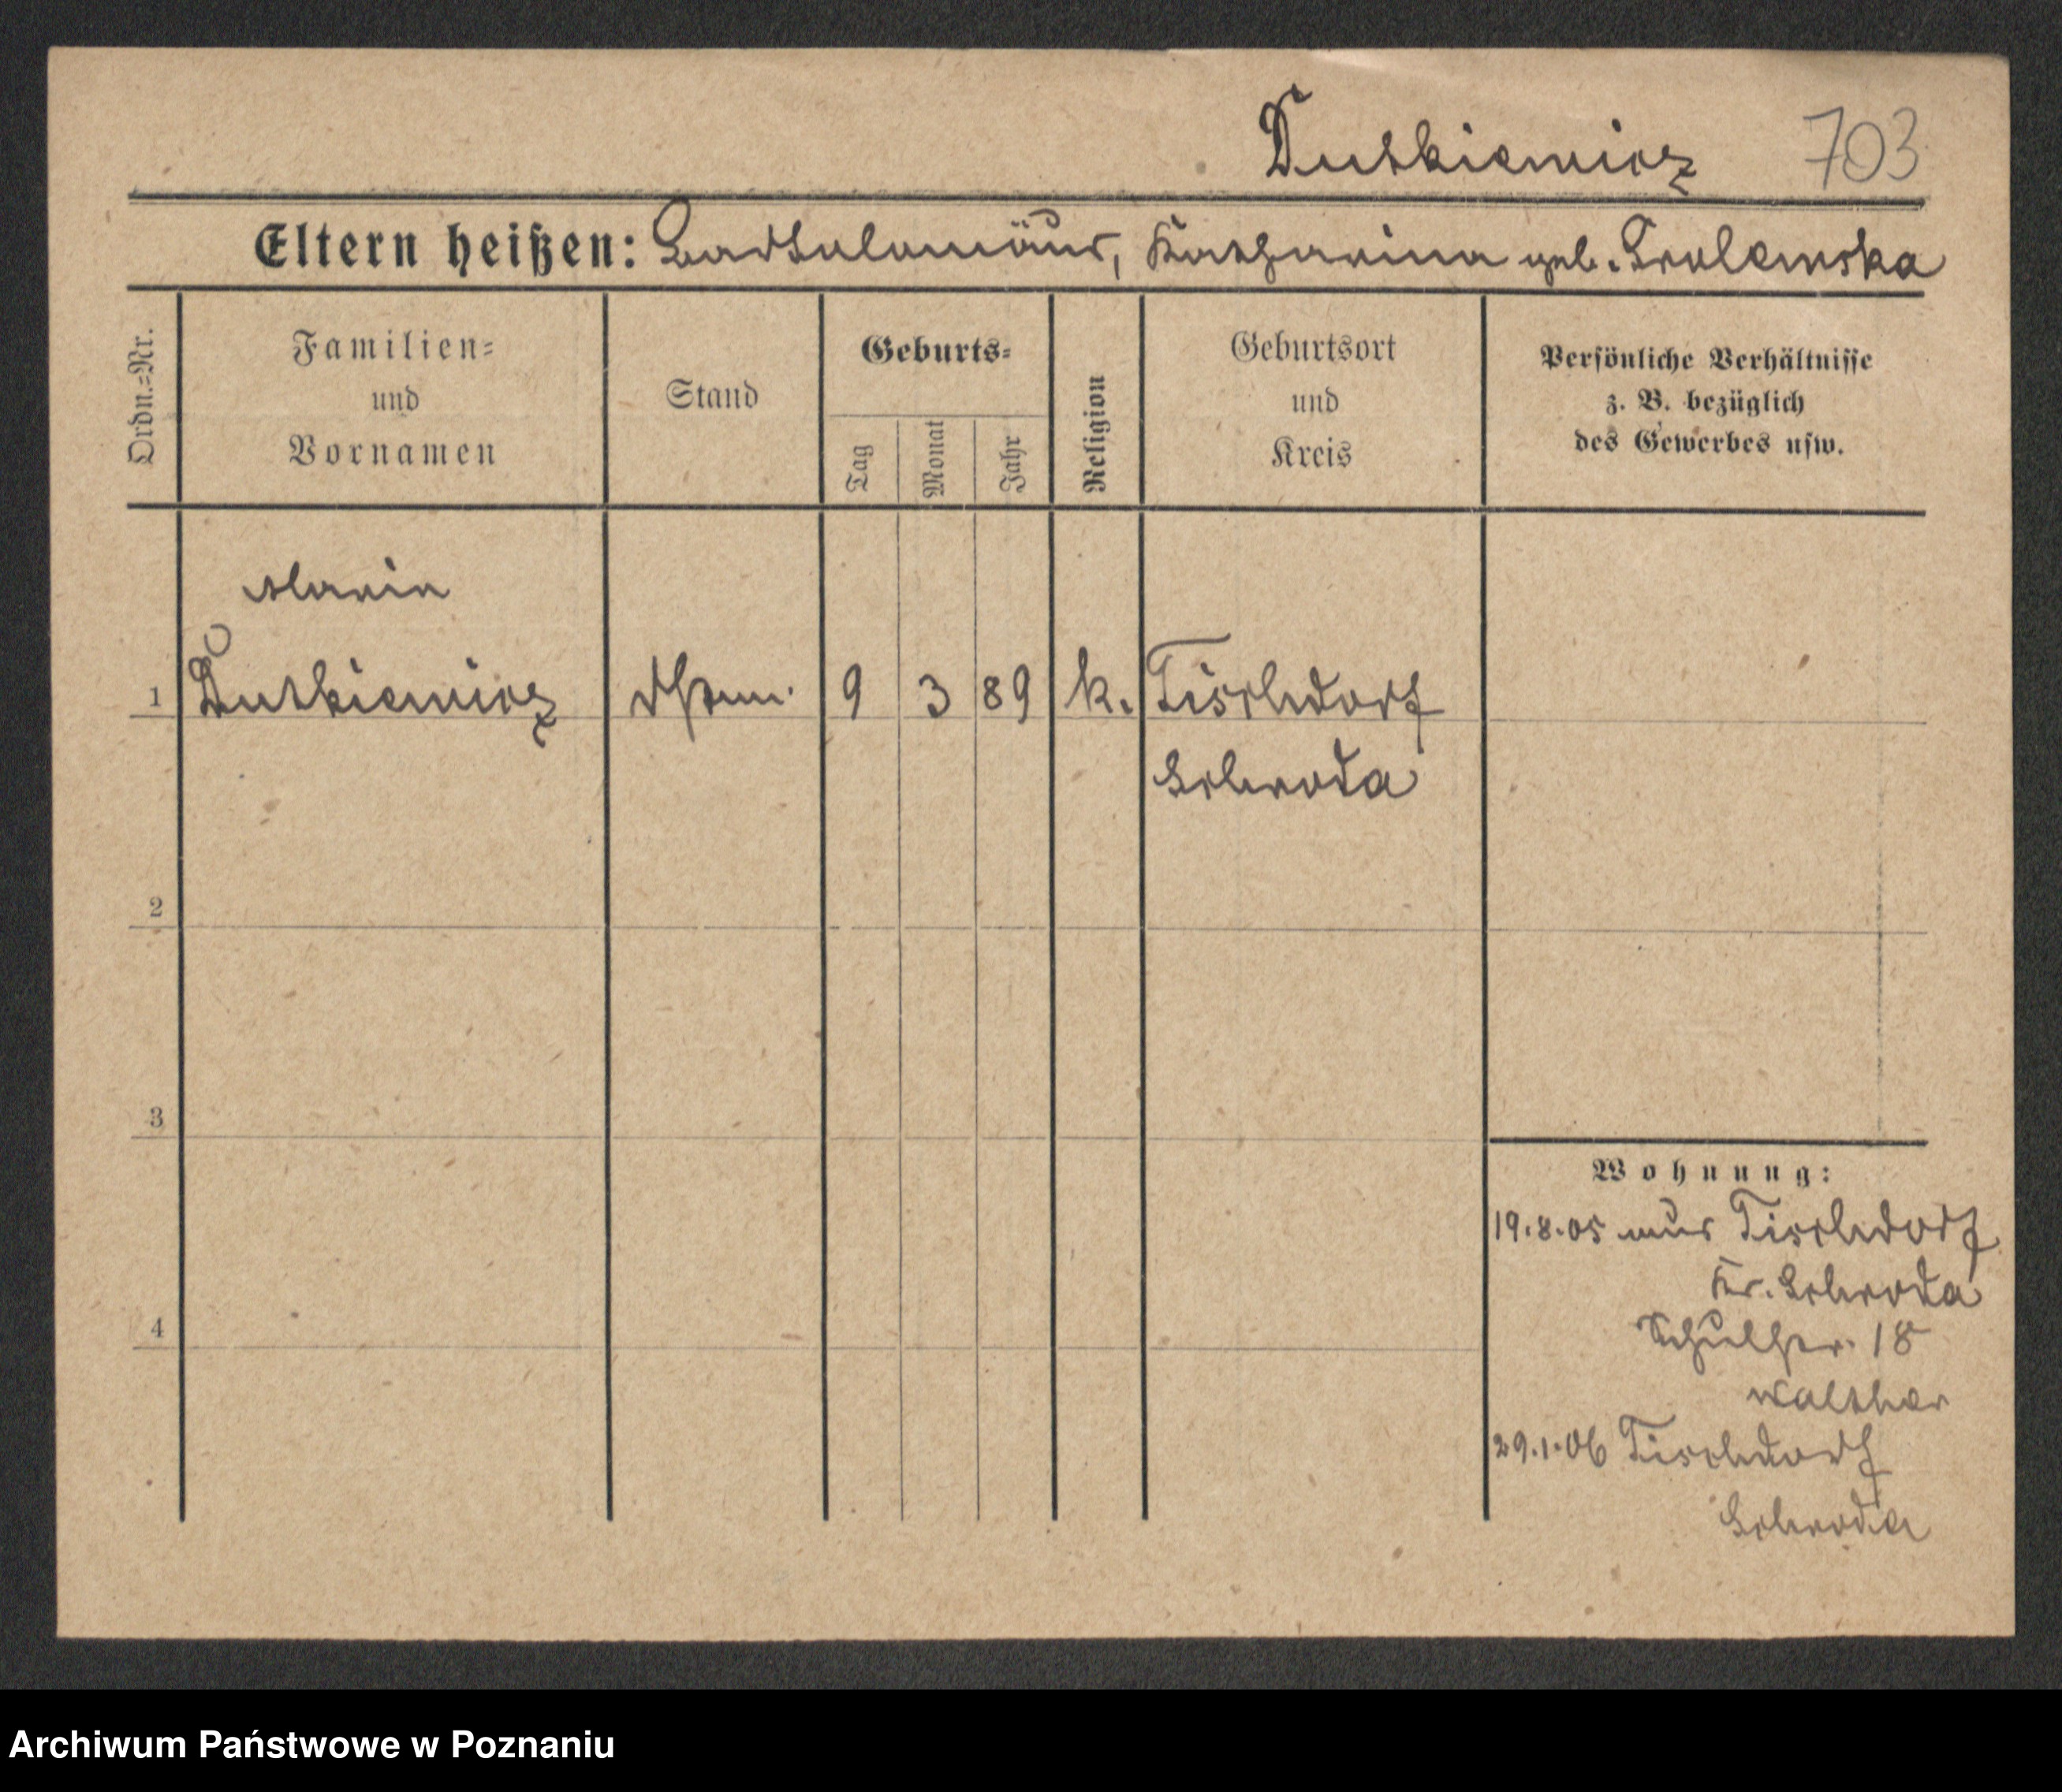 Dutkiewicz 703
Eltern heißen: Bartholomäus, Katharina geb.
Ordn.=Nr.
Familien=
und
Vornamen
Stand
Geburts=
Tag
Monat
Jahr
Religion
Geburtsort
und
Kreis
Persönliche Verhältnisse
z. B. bezüglich
des Gewerbes usw.
Maria
1 Dutkiewicz 9 3 89 k. Tischdorf
Schroda
2
3
4
Wohnung:
19.8.05 aus Tischdorf
Kr. Schroda
Schulstr. 18
Walther
29.1.06 Tischdorf
Schroda
Archiwum Państwowe w Poznaniu